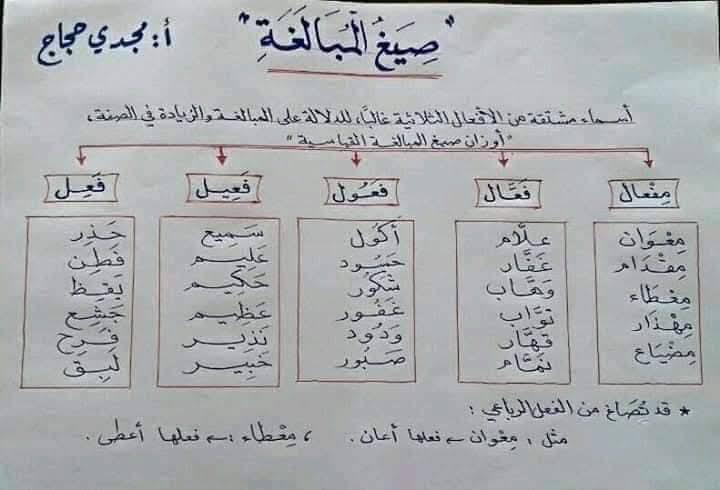 "صِيَغُ الْمُبَالَغَةِ" أ: مجدي حجاج
أسماء مشتقة من الأفعال الثلاثية غالبًا، للدلالة على المبالغة والزيادة في الصفة،
"أوزان صيغ المبالغة القياسية"
مِفْعال فَعَّال فَعُول فَعِيل فَعِل
مِعْوَان علَّام أَكُول سَمِيع حَذِر
مِقْدَام غَفَّار حَسُود عَلِيم فَطِن
مِعْطَاء وَهَّاب شَكُور حَكِيم يَقِظ
مِهْذَار توَّاب غَفُور عَظِيم جَشِع
مِضْيَاع قهَّار وَدُود نَذِير فَرِح
نمَّام صَبُور خَبِير لَبِق
* قد تُصَاغ من الفعل الرباعي:
مثل: مِعْوان ← فعلها أعان. ، مِعْطاء: ← فعلها أعطى.